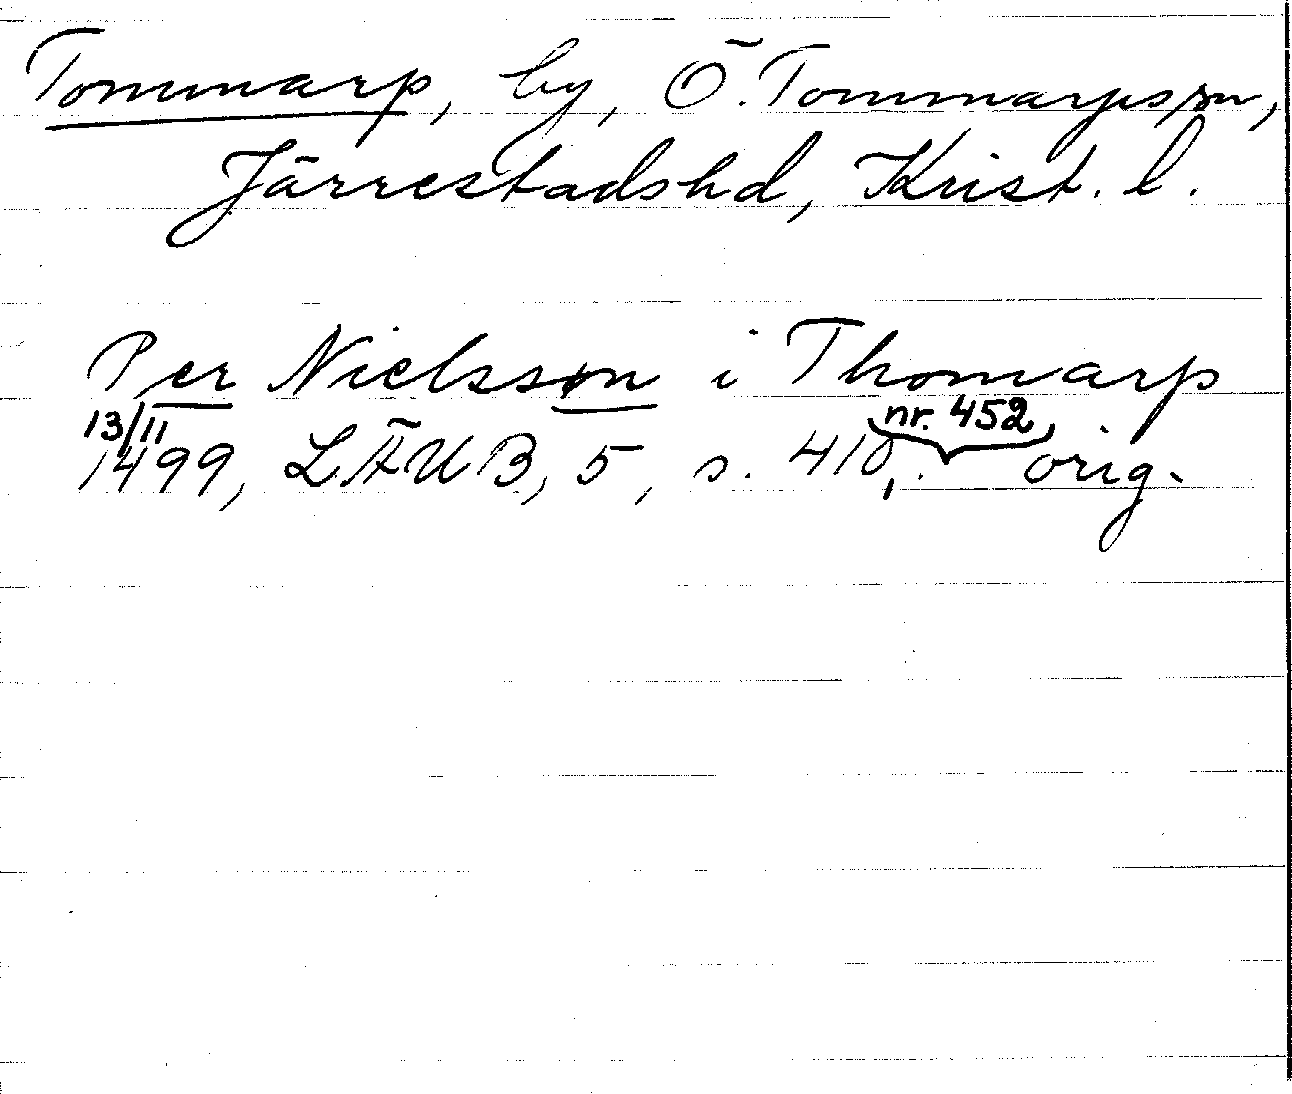 Tommarp, by, Ö. Tommarps sn,
Järrestadshd, Krist. l.
Per Nielsson i Thomarp
13/11 nr. 452
1499, LÄUB, 5, s. 410, orig.